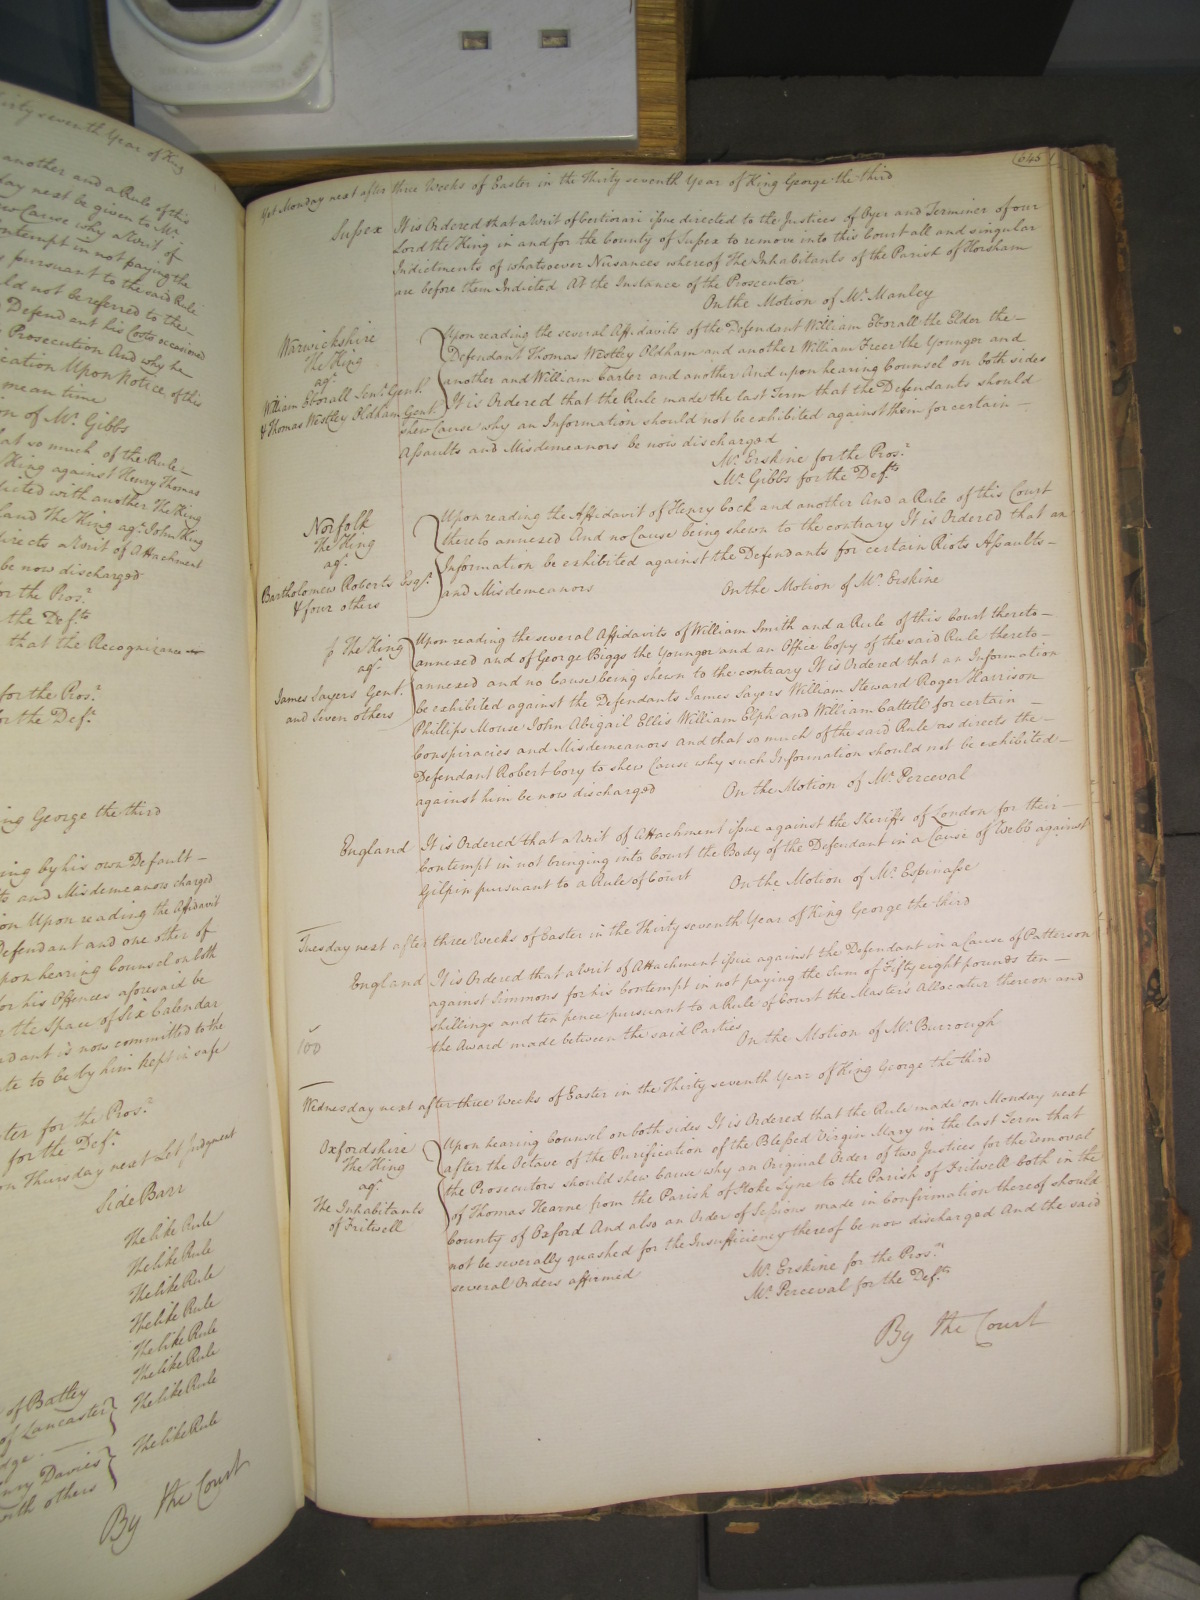 Thirty seventh Year of King
another and a Rule of this
day next be given to Mr.
Cause why a Writ of
contempt in not paying the
pursuant to the said Rule
ld not be referred to the
Defendent his Costs occasioned
Prosecution And why he
cation Upon Notice of this
mean time
on of Mr. Gibbs
that so much of the Rule
King against Henry Thomas
licted with another The King
land The King agt. John King
directs a Writ of Attachment
be now discharged
for the Pros.r
the Def.ts
that the Recognizance
for the Pros.r
for the Def.t
King George the third
ing by his own Default
ts and Misdemeanors charged
on Upon reading the Affidavit
Defendant and one other of
pon hearing Counsel on both
for his Offences aforesaid be
the Space of Six Calendar
ndant is now committed to the
te to be by him kept in safe
ter for the Pros.r
for the Def.t
on Thursday next Let Judgment
Side Barr
The like Rule
The like Rule
The like Rule
The like Rule
The like Rule
The like Rule
of Batley The like Rule
of Lancaster
dge
Henry Davies The like Rule
with others
By the Court
645
Yet Monday next after three Weeks of Easter in the Thirty seventh Year of King George the third
Sussex It is Ordered that a Writ of Certiorari issue directed to the Justices of Oyer and Terminer of our
Lord the King in and for the County of Sussex to remove into this Court all and singular
Indictments of whatsoever Nusances whereof The Inhabitants of the Parish of Horsham
are before them Indicted At the Instance of the Prosecutor
On the Motion of Mr. Manley
Warwickshire
The King
agt.
William Eborall Senr. Gent.
& Thomas Westley Oldham Gent.
Upon reading the several Affidavits of the Defendant William Eborall the Elder the
Defendant Thomas Westley Oldham and another William Freer the Younger and
another and William Carter and another And upon hearing Counsel on both sides
It is Ordered that the Rule made the last Term that the Defendants should
shew Cause why an Information should not be exhibited against them for certain
Assaults and Misdemeanors be now discharged
Mr. Erskine for the Pros.r
Mr. Gibbs for the Def.ts
Norfolk
The King
agt.
Bartholomew Roberts Esqr.
& four others
Upon reading the Affidavit of Henry Cock and another And a Rule of this Court
thereto annexed And no Cause being shewn to the contrary It is Ordered that an
Information be exhibited against the Defendants for certain Riots Assaults
and Misdemeanors On the Motion of Mr. Erskine
The King
agt.
James Sayers Gent.
and seven others
Upon reading the several Affidavits of William Smith and a Rule of this Court thereto
annexed and of George Biggs the Younger and an Office Copy of the said Rule thereto
annexed and no Cause being shewn to the contrary It is Ordered that an Information
be exhibited against the Defendants James Sayers William Steward Roger Harrison
Phillips Mouse John Abigail Ellis William Elph and William Cattell for certain
Conspiracies and Misdemeanors and that so much of the said Rule as directs the
Defendant Robert Cory to shew Cause why such Information should not be exhibited
against him be now discharged On the Motion of Mr. Perceval
England It is Ordered that a Writ of Attachment issue against the Sheriffs of London for their
Contempt in not bringing into Court the Body of the Defendant in a Cause of Webb against
Gilpin pursuant to a Rule of Court On the Motion of Mr. Espinasse
Tuesday next after three Weeks of Easter in the Thirty seventh Year of King George the third
England It is Ordered that a Writ of Attachment issue against the Defendant in a Cause of Patterson
against Simmons for his Contempt in not paying the Sum of Fifty eight pounds ten
shillings and ten pence pursuant to a Rule of Court the Master's Allocatur thereon and
100 the Award made between the said Parties On the Motion of Mr. Burrough
Wednesday next after three Weeks of Easter in the Thirty seventh Year of King George the third
Oxfordshire
The King
agt.
The Inhabitants
of Fritwell
Upon hearing Counsel on both sides It is Ordered that the Rule made on Monday next
after the Octave of the Purification of the Blessed Virgin Mary in the last Term that
the Prosecutors should shew Cause why an Original Order of two Justices for the removal
of Thomas Hearne from the Parish of Stoke Lyne to the Parish of Fritwell both in the
County of Oxford And also an Order of Sessions made in Confirmation thereof should
not be severally quashed for the Insufficiency thereof be now discharged And the said
several Orders affirmed
Mr. Erskine for the Pros.rs
Mr. Perceval for the Def.ts
By the Court